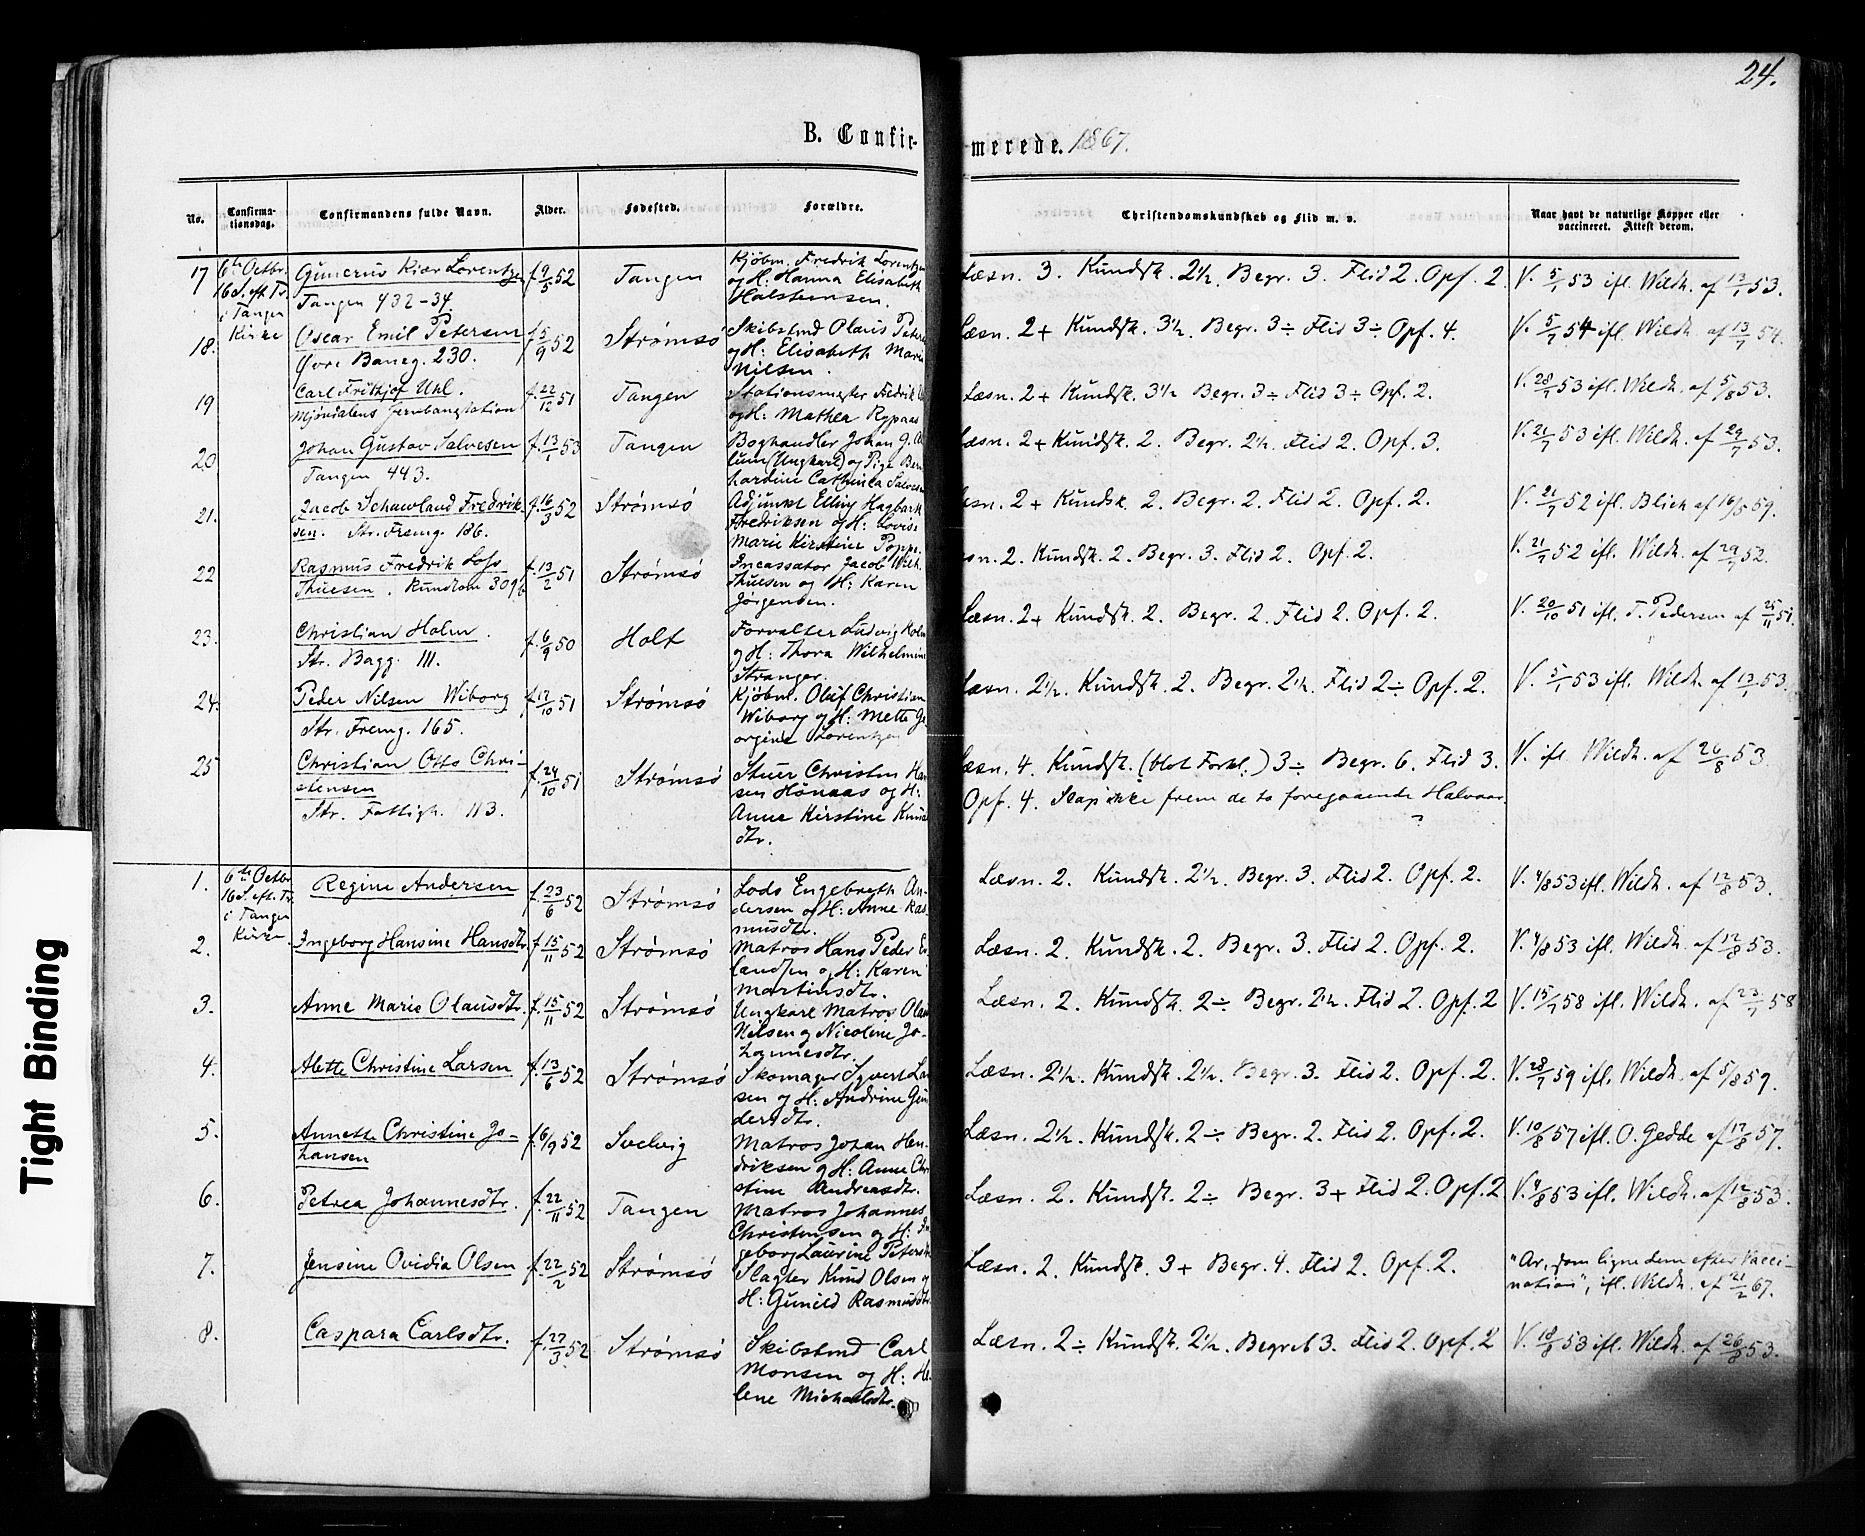 24.
B. Confir-
merede. 1867.
No.
Confirma-
tionsdag.
Confirmandens fulde Navn.
Alder.
Fødested.
Forældre.
Christendomskundskab og Flid m. v.
Naar havt de naturlige Kopper eller
vaccineret. Attest derom.
17
6te Octbr.
16 S. eft. Tr.
i Tangen
Kirke
Gunerius Kiær Lorentzen
Tangen 432-34.
f. 9/5 52
Tangen
Kjøbm. Fredrik Lorentzen
og H. Hanna Elisabeth
Halstensen.
Læsn. 3. Kundsk. 2½. Begr. 3. Flid 2. Opf. 2.
V. 5/1 53 ifl. Wildh. af 13/1 53.
18.
Oscar Emil Petersen
Øvre Baneg. 230.
f. 5/9 52
Strømsö
Skibstmd Olaus Peters
og H: Elisabeth Marie
Nilsen.
Læsn. 2+ Kundsk. 3½. Begr. 3÷ Flid 3÷ Opf. 4.
V. 5/7 54 ifl. Wildh. af 13/7 54.
19
Carl Frithjof Uhl.
Mjøndalens Jernbanstation
f. 22/12 51
Tangen
Stationsmester Fredrik U
og H: Mathea Rypaas
Læsn. 2+ Kundsk. 3½ Begr. 3÷ Flid 3÷ Opf. 2.
V. 28/7 53 ifl. Wildh. af 5/8 53.
20
Johan Gustav Salvesen
Tangen 443.
f. 13/1 53
Tangen
Boghandler Johan G.
(Ungkarl) og Pige Bern
hardine Cathinka Salvesen
Læsn. 2+ Kundsk. 2. Begr. 2½. Flid 2. Opf. 3.
V. 21/7 53 ifl. Wildh. af 29/7 53.
21.
Jacob Schauland Fredrik-
sen. Str. Fremg. 186.
f. 16/3 52
Strømsö
Adjunkt Elling Hagbarth
Fredriksen og H: Lovise
Marie Kirstine Poppe.
Læsn. 2+ Kundsk. 2. Begr. 2. Flid 2. Opf. 2.
V. 21/7 52 ifl. Blich af 16/5 59.
22
Rasmus Fredrik Loss
Thuesen. Rundtom 309b
f. 13/2 51
Strømsö
Incassator Jacob Wilh.
Thuesen og H: Karen
Jørgensen.
Læsn. 2. Kundsk. 2. Begr. 3. Flid 2. Opf. 2.
V. 21/7 52 ifl. Wildh. af 29/7 52.
23.
Christian Holm.
Str. Bagg. 111.
f. 6/9 50
Holt
Forvalter Ludvig Holm
og H: Thora Wilhelmine
Stranger.
Læsn. 2+ Kundsk. 2. Begr. 2. Flid 2. Opf. 2.
V. 20/10 51 ifl. T. Pedersen af 25/11 51.
24.
Peder Nilsen Wiborg
Str. Fremg. 165.
f. 17/10 51
Strømsö
Kjøbm. Oluf Christian
Wiborg og H: Mette Ge-
orgine Lorentzen
Læsn. 2½. Kundsk. 2. Begr. 2½. Flid 2÷ Opf. 2.
V. 5/1 53 ifl. Wildh. af 13/1 53.
25
Christian Otto Chri-
stensen
Str. Fattigh. 113.
f. 24/10 51
Strømsö
Stuer Christen Han
sen Hønaas og H:
Anne Kirstine Knuds
dtr.
Læsn. 4. Kundsk. (blot Forkl.) 3÷ Begr. 6. Flid 3.
Opf. 4. Slap ikke frem de to foregaaende Halvaar.
V. ifl. Wildh. af 26/8 53.
1.
6te Octbr
16 S. eft. Tr.
i Tangen
Kirke.
Regine Andersen
f. 23/6 52
Strømsö
Lods Engebreth An-
dersen og H: Anne Ras
musdtr.
Læsn. 2. Kundsk. 2½. Begr. 3. Flid 2. Opf. 2.
V. 4/8 53 ifl. Wildh. af 12/8 53.
2.
Ingeborg Hansine Hansdtr.
f. 15/11 52
Strømsö
Matros Hans Peder Er
landsen og H: Karen
Martinsdtr.
Læsn. 2. Kundsk. 2. Begr. 3. Flid 2. Opf. 2.
V. 4/8 53 ifl. Wildh. af 12/8 53.
3.
Anne Marie Olausdtr.
f. 15/11 52
Strømsö
Ungkarl Matros Olaus
Nilsen og Nicoline Jo-
hannesdtr.
Læsn. 2. Kundsk. 2÷ Begr. 2½. Flid 2. Opf. 2
V. 15/7 58 ifl. Wildh. af 23/7 58
4.
Alette Christine Larsen
f. 13/6 52
Strømsö
Skomager Syvert Lar
sen og H: Andrine Gun
dersdtr.
Læsn. 2½. Kundsk. 2½. Begr. 3. Flid 2. Opf. 2.
V. 28/7 59 ifl. Wildh. af 5/8 59.
5.
Annette Christine Jo-
hansen
f. 6/9 52
Svelvig
Matros Johan Hen-
driksen og H: Anne Chri
stine Andreasdtr.
Læsn. 2½. Kundsk. 2÷ Begr. 2. Flid 2. Opf. 2.
V. 10/8 57 ifl. O. Gedde af 17/8 57.
6.
Petrea Johannesdtr.
f. 22/11 52
Tangen
Matros Johannes
Christensen og H: In
geborg Laurine Petersdtr
Læsn. 2. Kundsk. 2÷ Begr. 3+ Flid 2. Opf. 2
V. 4/8 53 ifl. Wildh. af 12/8 53.
7.
Jensine Ovidia Olsen
f. 22/2 52
Strømsö
Slagter Knud Olsen og
H: Gunild Rasmusdtr.
Læsn. 2. Kundsk. 3+ Begr. 4. Flid 2. Opf. 2.
"Ar, som ligne dem efter Vacci-
nation", ifl. Wildh. af 21/2 67.
8.
Caspara Carlsdtr.
f. 27/3 52
Strømsö
Skibstmd Carl
Monsen og H: He
lene Michaelsdtr.
Læsn. 2÷ Kundsk. 2½. Begreb 3. Flid 2. Opf. 2
V. 18/8 53 ifl. Wildh. af 26/8 53.
Tight Binding